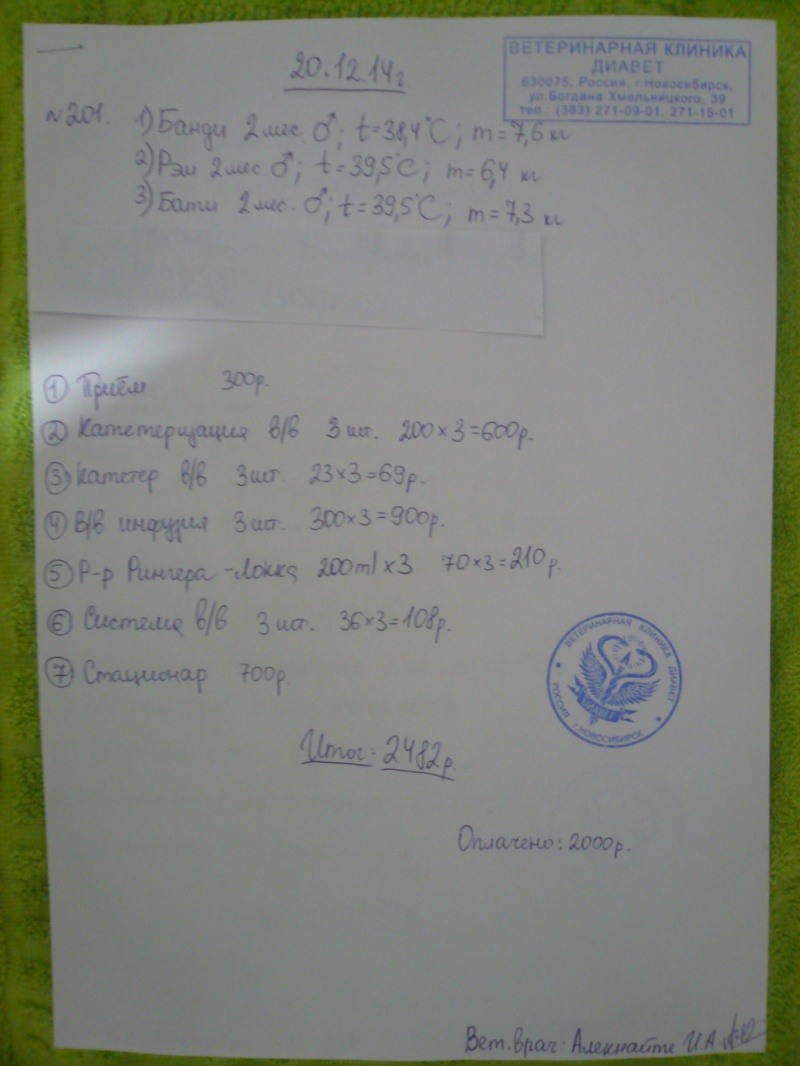 20.12.14г.
ВЕТЕРИНАРНАЯ КЛИНИКА
ДИАВЕТ
630075, Россия, г.Новосибирск,
ул.Богдана Хмельницкого, 39
тел.: (383) 271-09-01, 271-15-01
№201. 1) Банди 2 мес. ♂; t=38,4°C; m=7,6 кг
2) Рэй 2 мес. ♂; t=39,5°C; m=6,4 кг
3) Бати 2 мес. ♂; t=39,5°C; m=7,3 кг
① Приём 300р.
② Катетеризация в/в 3 шт. 200×3=600р.
③ Катетер в/в 3 шт. 23×3=69р.
④ В/в инфузия 3 шт. 300×3=900р.
⑤ Р-р Рингера-Локка 200ml×3 70×3=210р.
⑥ Система в/в 3 шт. 36×3=108р.
⑦ Стационар 700р.
ВЕТЕРИНАРНАЯ КЛИНИКА ДИАВЕТ
РОССИЯ г.НОВОСИБИРСК
Итог: 2482р.
Оплачено: 2000р.
Вет.врач: Алекнайте И.А.